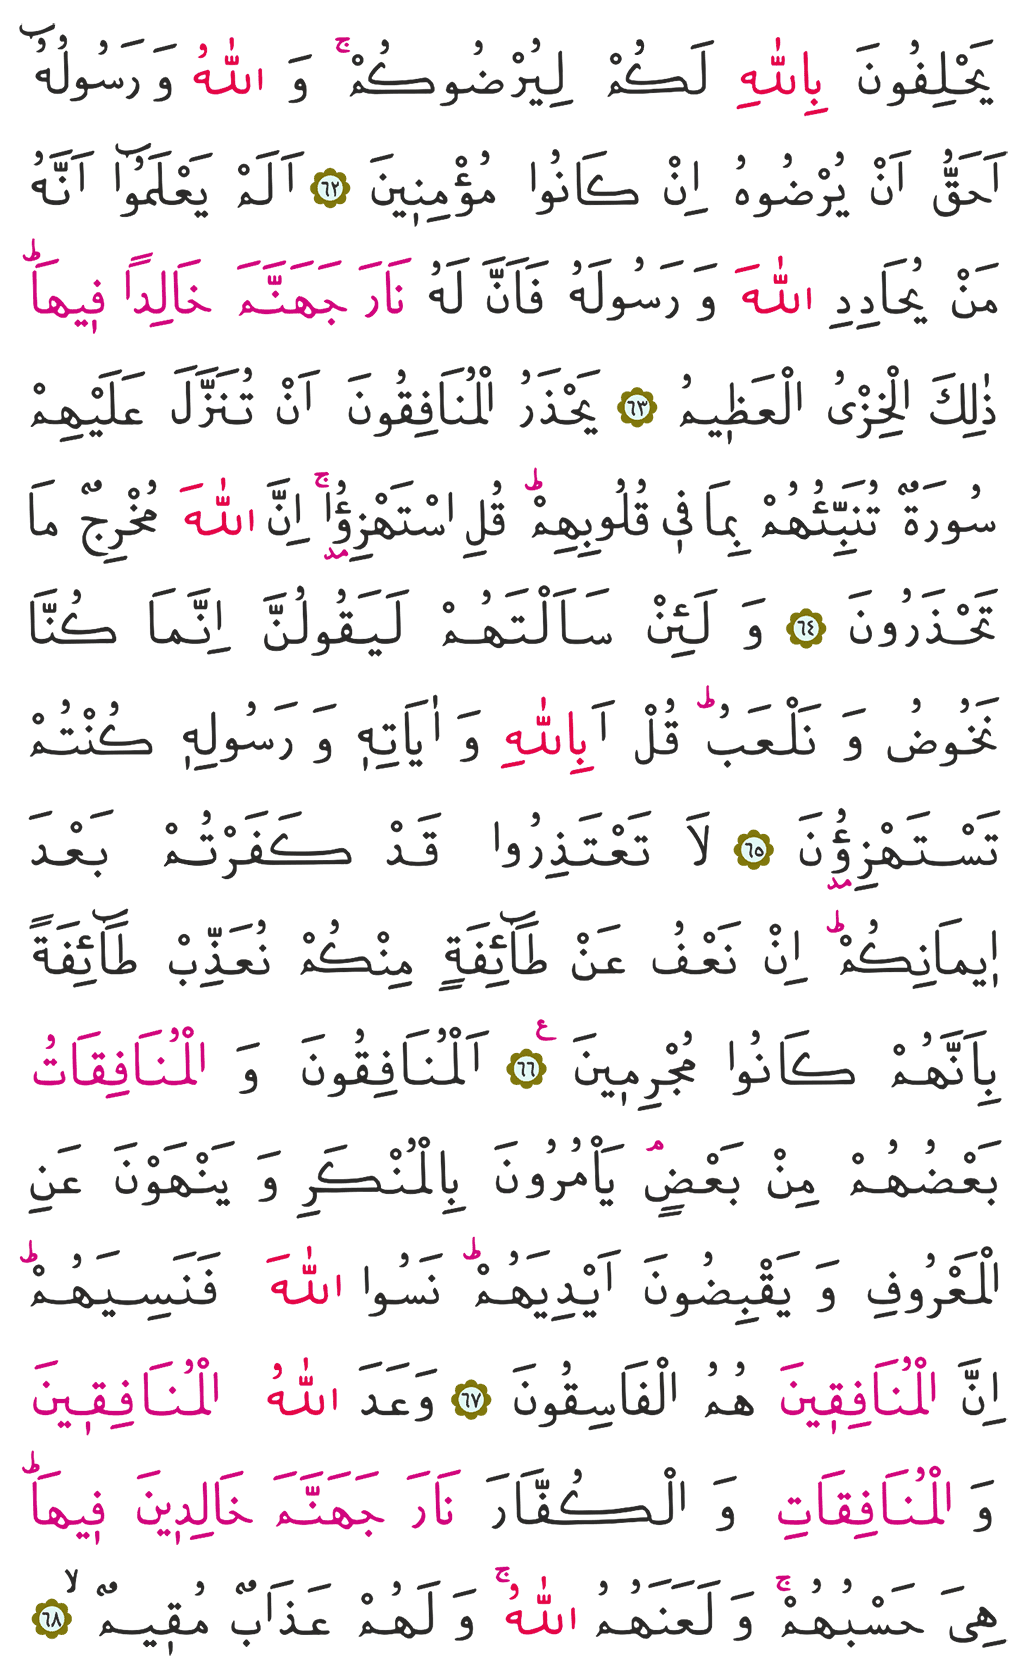 يَحْلِفُونَ بِاللّٰهِ لَكُمْ لِيُرْضُوكُمْۚ وَ اللّٰهُ وَ رَسُولُهُٓ
اَحَقُّ اَنْ يُرْضُوهُ اِنْ كَانُوا مُؤْمِنٖينَ ﴿٦٢﴾ اَلَمْ يَعْلَمُٓوا اَنَّهُ
مَنْ يُحَادِدِ اللّٰهَ وَ رَسُولَهُ فَاَنَّ لَهُ نَارَ جَهَنَّمَ خَالِدًا فٖيهَاؕ
ذٰلِكَ الْخِزْىُ الْعَظٖيمُ ﴿٦٣﴾ يَحْذَرُ الْمُنَافِقُونَ اَنْ تُنَزَّلَ عَلَيْهِمْ
سُورَةٌ تُنَبِّئُهُمْ بِمَا فٖى قُلُوبِهِمْؕ قُلِ اسْتَهْزِؤُ۫اۚ اِنَّ اللّٰهَ مُخْرِجٌ مَا
تَحْذَرُونَ ﴿٦٤﴾ وَ لَئِنْ سَاَلْتَهُمْ لَيَقُولُنَّ اِنَّمَا كُنَّا
نَخُوضُ وَ نَلْعَبُؕ قُلْ اَبِاللّٰهِ وَ اٰيَاتِهٖ وَ رَسُولِهٖ كُنْتُمْ
تَسْتَهْزِؤُ۫نَ ﴿٦٥﴾ لَا تَعْتَذِرُوا قَدْ كَفَرْتُمْ بَعْدَ
اٖيمَانِكُمْؕ اِنْ نَعْفُ عَنْ طَٓائِفَةٍ مِنْكُمْ نُعَذِّبْ طَٓائِفَةً
بِاَنَّهُمْ كَانُوا مُجْرِمٖينَ ﴿٦٦﴾ ع اَلْمُنَافِقُونَ وَ الْمُنَافِقَاتُ
بَعْضُهُمْ مِنْ بَعْضٍۘ يَاْمُرُونَ بِالْمُنْكَرِ وَ يَنْهَوْنَ عَنِ
الْمَعْرُوفِ وَ يَقْبِضُونَ اَيْدِيَهُمْؕ نَسُوا اللّٰهَ فَنَسِيَهُمْؕ
اِنَّ الْمُنَافِقٖينَ هُمُ الْفَاسِقُونَ ﴿٦٧﴾ وَعَدَ اللّٰهُ الْمُنَافِقٖينَ
وَ الْمُنَافِقَاتِ وَ الْكُفَّارَ نَارَ جَهَنَّمَ خَالِدٖينَ فٖيهَاؕ
هِىَ حَسْبُهُمْۚ وَ لَعَنَهُمُ اللّٰهُۚ وَ لَهُمْ عَذَابٌ مُقٖيمٌۙ ﴿٦٨﴾